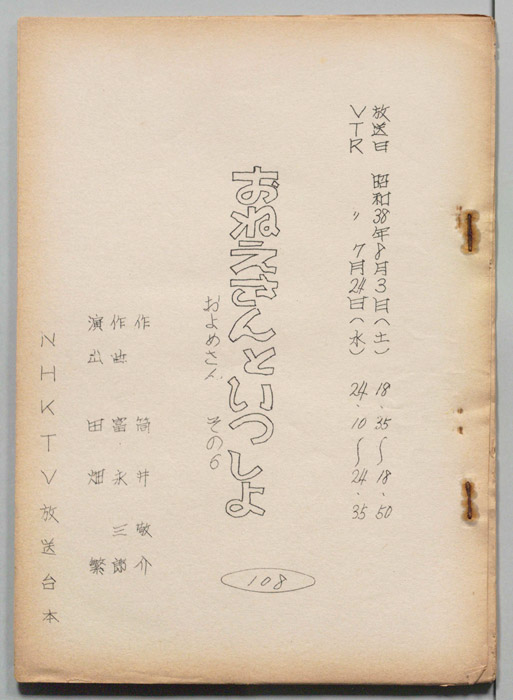 放送日 昭和38年8月3日(土) 18.35〜18.50
VTR 〃 7月24日(水) 24.10〜24.35
おねえさんといつしよ
およめさん その6
108
作 筒井敬介
作曲 冨永三郎
演出 田畑繁
NHKTV放送台本